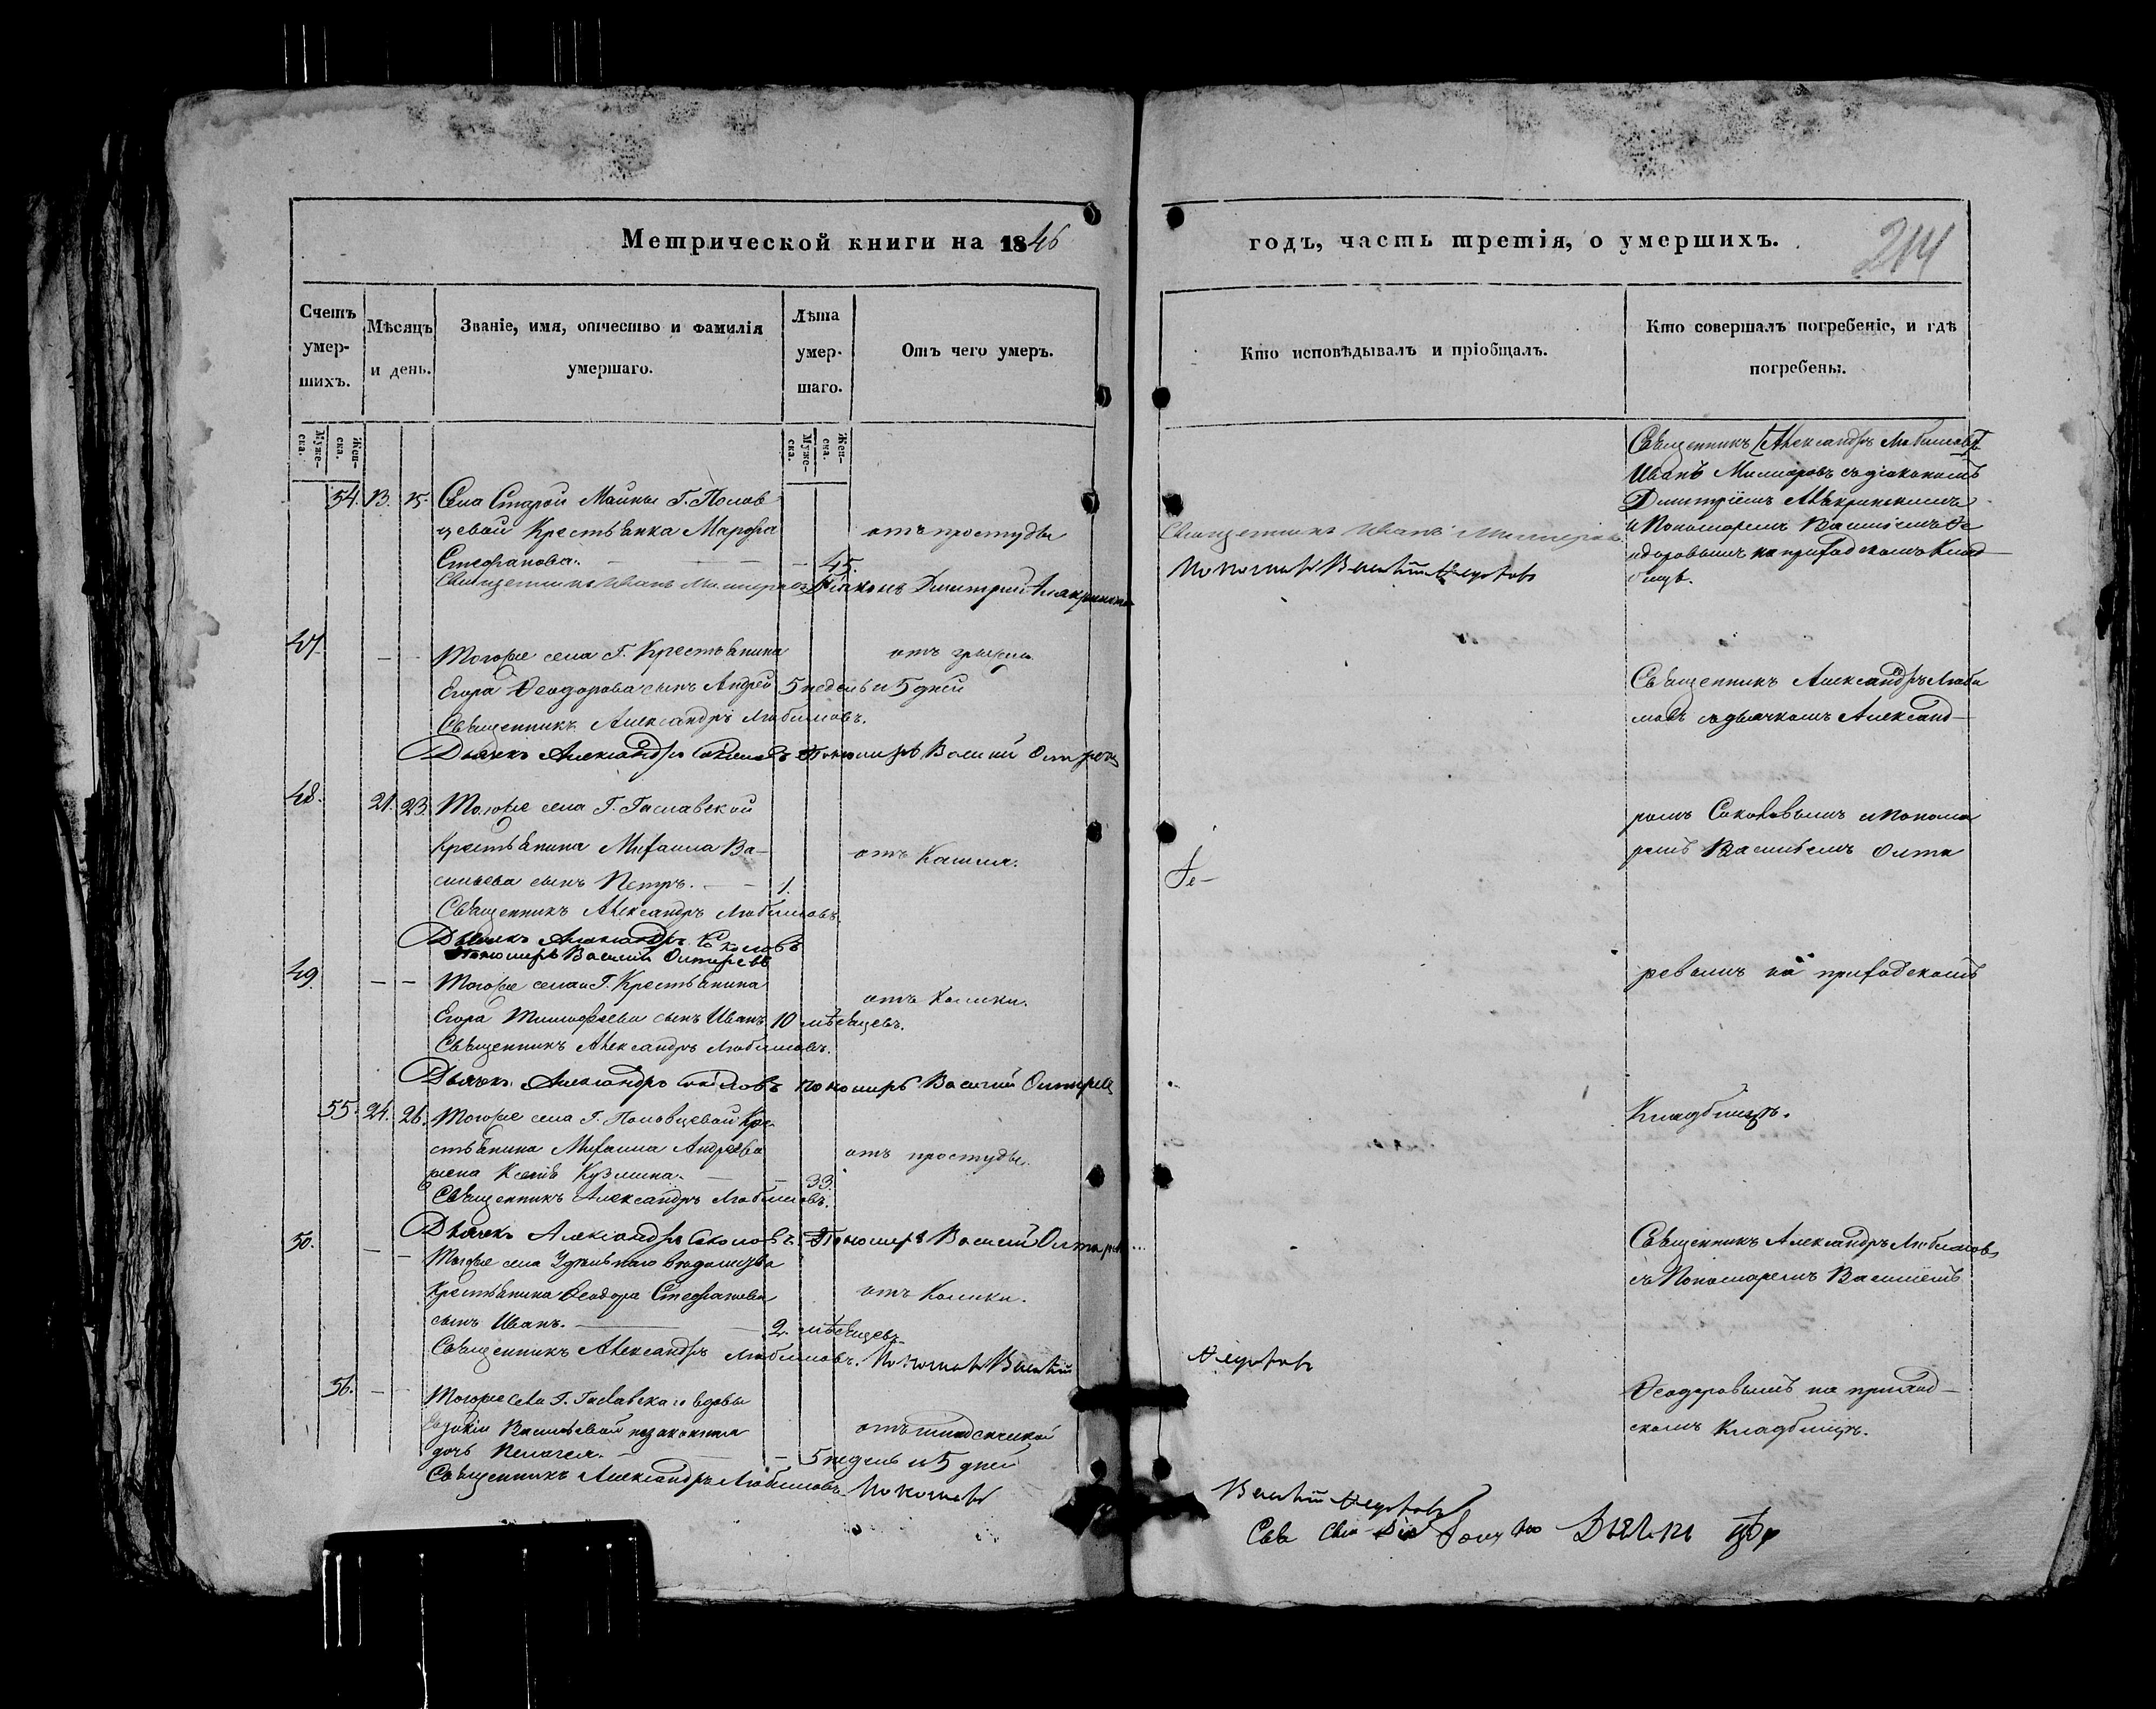 Метрической книги на 1846
годъ, часть третія, о умершихъ.
214
Счетъ умер-шихъ.
Мѣсяцъ и день.
Званіе, имя, отчество и фамилія умершаго.
Лѣта умер-шаго.
Отъ чего умеръ.
Кто исповѣдывалъ и пріобщалъ.
Кто совершалъ погребеніе, и гдѣ погребены.
Муже-ска.
Жен-ска.
Муже-ска.
Жен-ска.
54. 13. 15. Села Старой Майны Г. Полов
цевой Крестьянка Марфа
отъ простуды
Стефанова. 45.
Священникъ Иванъ
Діаконъ Димитрий
Священникъ Иванъ
Пономарь Василій Федоровъ
Священникъ Александръ Любимовъ
Иванъ съ діакономъ
Димитріемъ
и Пономаремъ Василіемъ Ѳе
одоровымъ на приходскомъ Клад
бищѣ.
47. Тогоже села Г. Крестьянина
Егора Ѳеодорова сынъ Андрей 5 недель и 5 дней
отъ грыжи
Священникъ Александръ Любимовъ.
Дьячекъ Александръ Соколовъ Пономарь Василий
Священникъ Александръ Люби
мовъ съ дьячкомъ Александ-
48. 21. 23. Тогоже села Г. Гаславской
Крестьянина Михаила Ва-
сильева сынъ Петръ. 1.
отъ Кашля.
Священникъ Александръ Любимовъ.
Дьячекъ Александръ Соколовъ
Пономарь Василий Олтаревъ
ромъ Соколовымъ и Понома
ремъ Василіемъ Олта
49. Тогоже села Г. Крестьянина
Егора Тимофеева сынъ Иванъ 10 мѣсяцевъ.
отъ Колики.
Священникъ Александръ Любимовъ.
Дьячекъ Александръ Соколовъ Пономарь Василий
ревымъ на приходскомъ
55. 24. 26. Тогоже села Г. Половцевой Кре
стьянина Михаила Андреева
жена Ксенія Кузмина. 33.
отъ простуды.
Священникъ Александръ Любимовъ.
Дьячекъ Александръ Соколовъ. Пономарь Василий
Кладбищѣ.
50. Тогоже села Удѣльнаго вѣдомства
Крестьянина Ѳеодора Стефанова
сынъ Иванъ. 2. мѣсяцевъ
отъ Колики.
Священникъ Александръ Любимовъ. Пономарь Василій
Федоровъ
Священникъ Александръ Любимовъ
съ Пономаремъ Василіемъ
56. Тогоже села Г. Гаславскаго вдовы
Васильевой незаконная
дочь Пелагея. 5 недель и 5 дней
отъ младенческой
Священникъ Александръ Любимовъ Пономарь
Василій Федоровъ
Ѳеодоровымъ на приход-
скомъ Кладбищѣ.